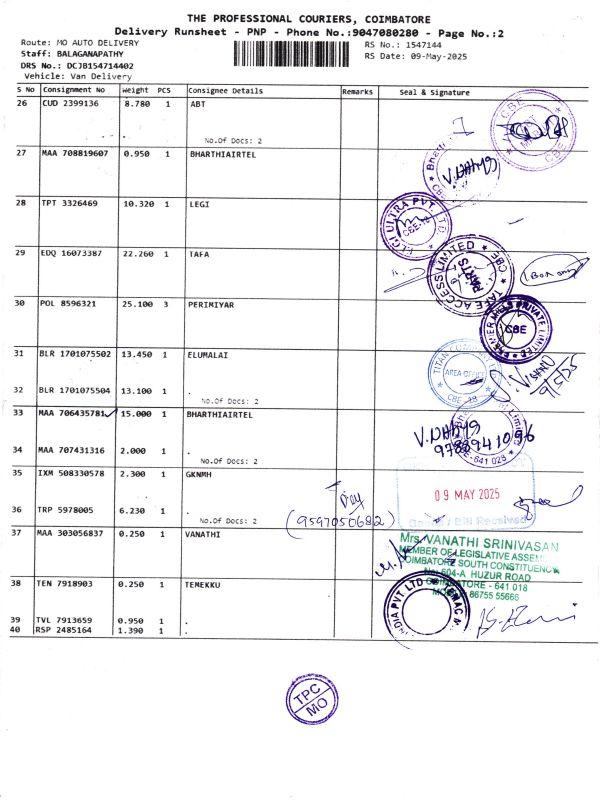 THE PROFESSIONAL COURIERS, COIMBATORE
Delivery Runsheet - PNP - Phone No.:9047080280 - Page No.:2
Route: MO AUTO DELIVERY
RS No.: 1547144
Staff: BALAGANAPATHY
RS Date: 09-May-2025
DRS No.: DCJB154714402
Vehicle: Van Delivery
S No Consignment No Weight PCS Consignee Details Remarks Seal & Signature
26 CUD 2399136 8.780 1 ABT
CBE
No.Of Docs: 2
27 MAA 708819607 0.950 1 BHARTHIAIRTEL
28 TPT 3326469 10.320 1 LEGI
LEGI ULTRA PVT. LTD.
CBE-18
29 EDQ 16073387 22.260 1 TAFA
TAFE ACCESS LIMITED CBE
PARTS
30 POL 8596321 25.100 3 PERIMIYAR
MILLS PRIVATE LIMITED
CBE
31 BLR 1701075502 13.450 1 ELUMALAI
TITAN COM
AREA OFFICE
CBE-18
9/5/25
32 BLR 1701075504 13.100 1 .
No.Of Docs: 2
33 MAA 706435781 15.000 1 BHARTHIAIRTEL
9788941096
Limited
641 028
34 MAA 707431316 2.000 1 .
No.Of Docs: 2
35 IXM 508330578 2.300 1 GKNMH
09 MAY 2025
36 TRP 5978005 6.230 1 .
No.Of Docs: 2
(9597050682)
Received
37 MAA 303056837 0.250 1 VANATHI
Mrs. VANATHI SRINIVASAN
MEMBER OF LEGISLATIVE ASSEM
COIMBATORE SOUTH CONSTITUENCY
No: 604-A HUZUR ROAD
COIMBATORE - 641 018
86755 55666
38 TEN 7918903 0.250 1 TEMEKKU
INDIA PVT. LTD
39 TVL 7913659 0.950 1 .
40 RSP 2485164 1.390 1 .
TPC
MO